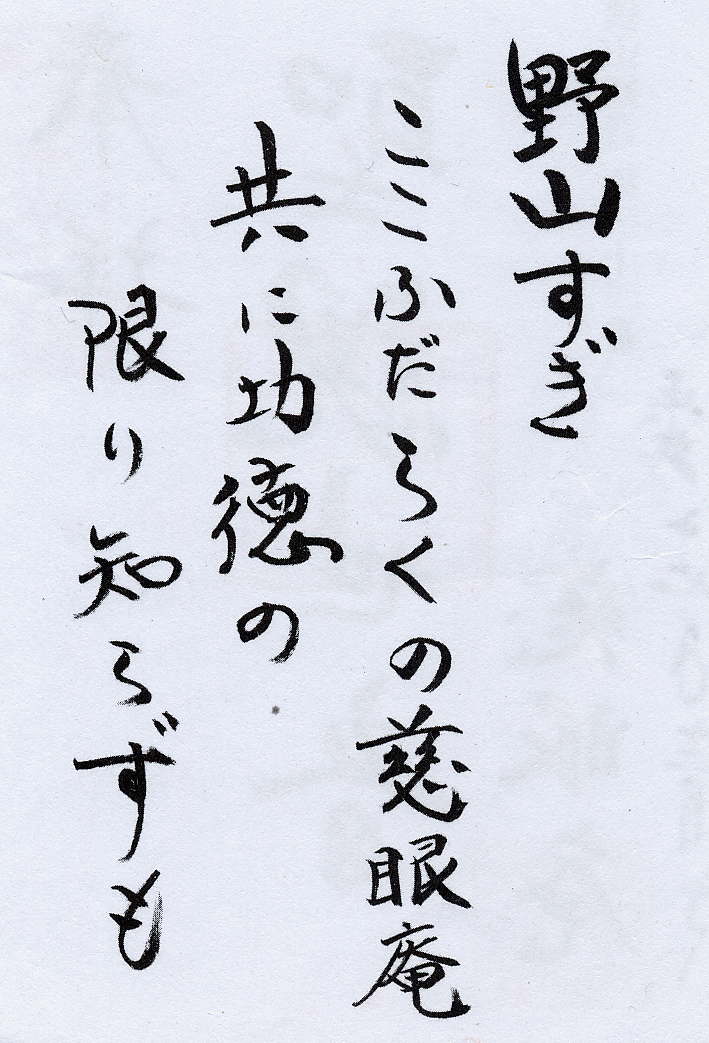 野山すぎ
ここふだらくの慈眼庵
共に功徳の
限り知らずも